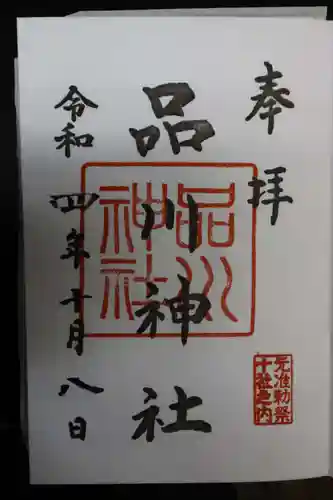 奉拝
品川神社
品川神社
元准勅祭
十社之内
令和四年十月八日